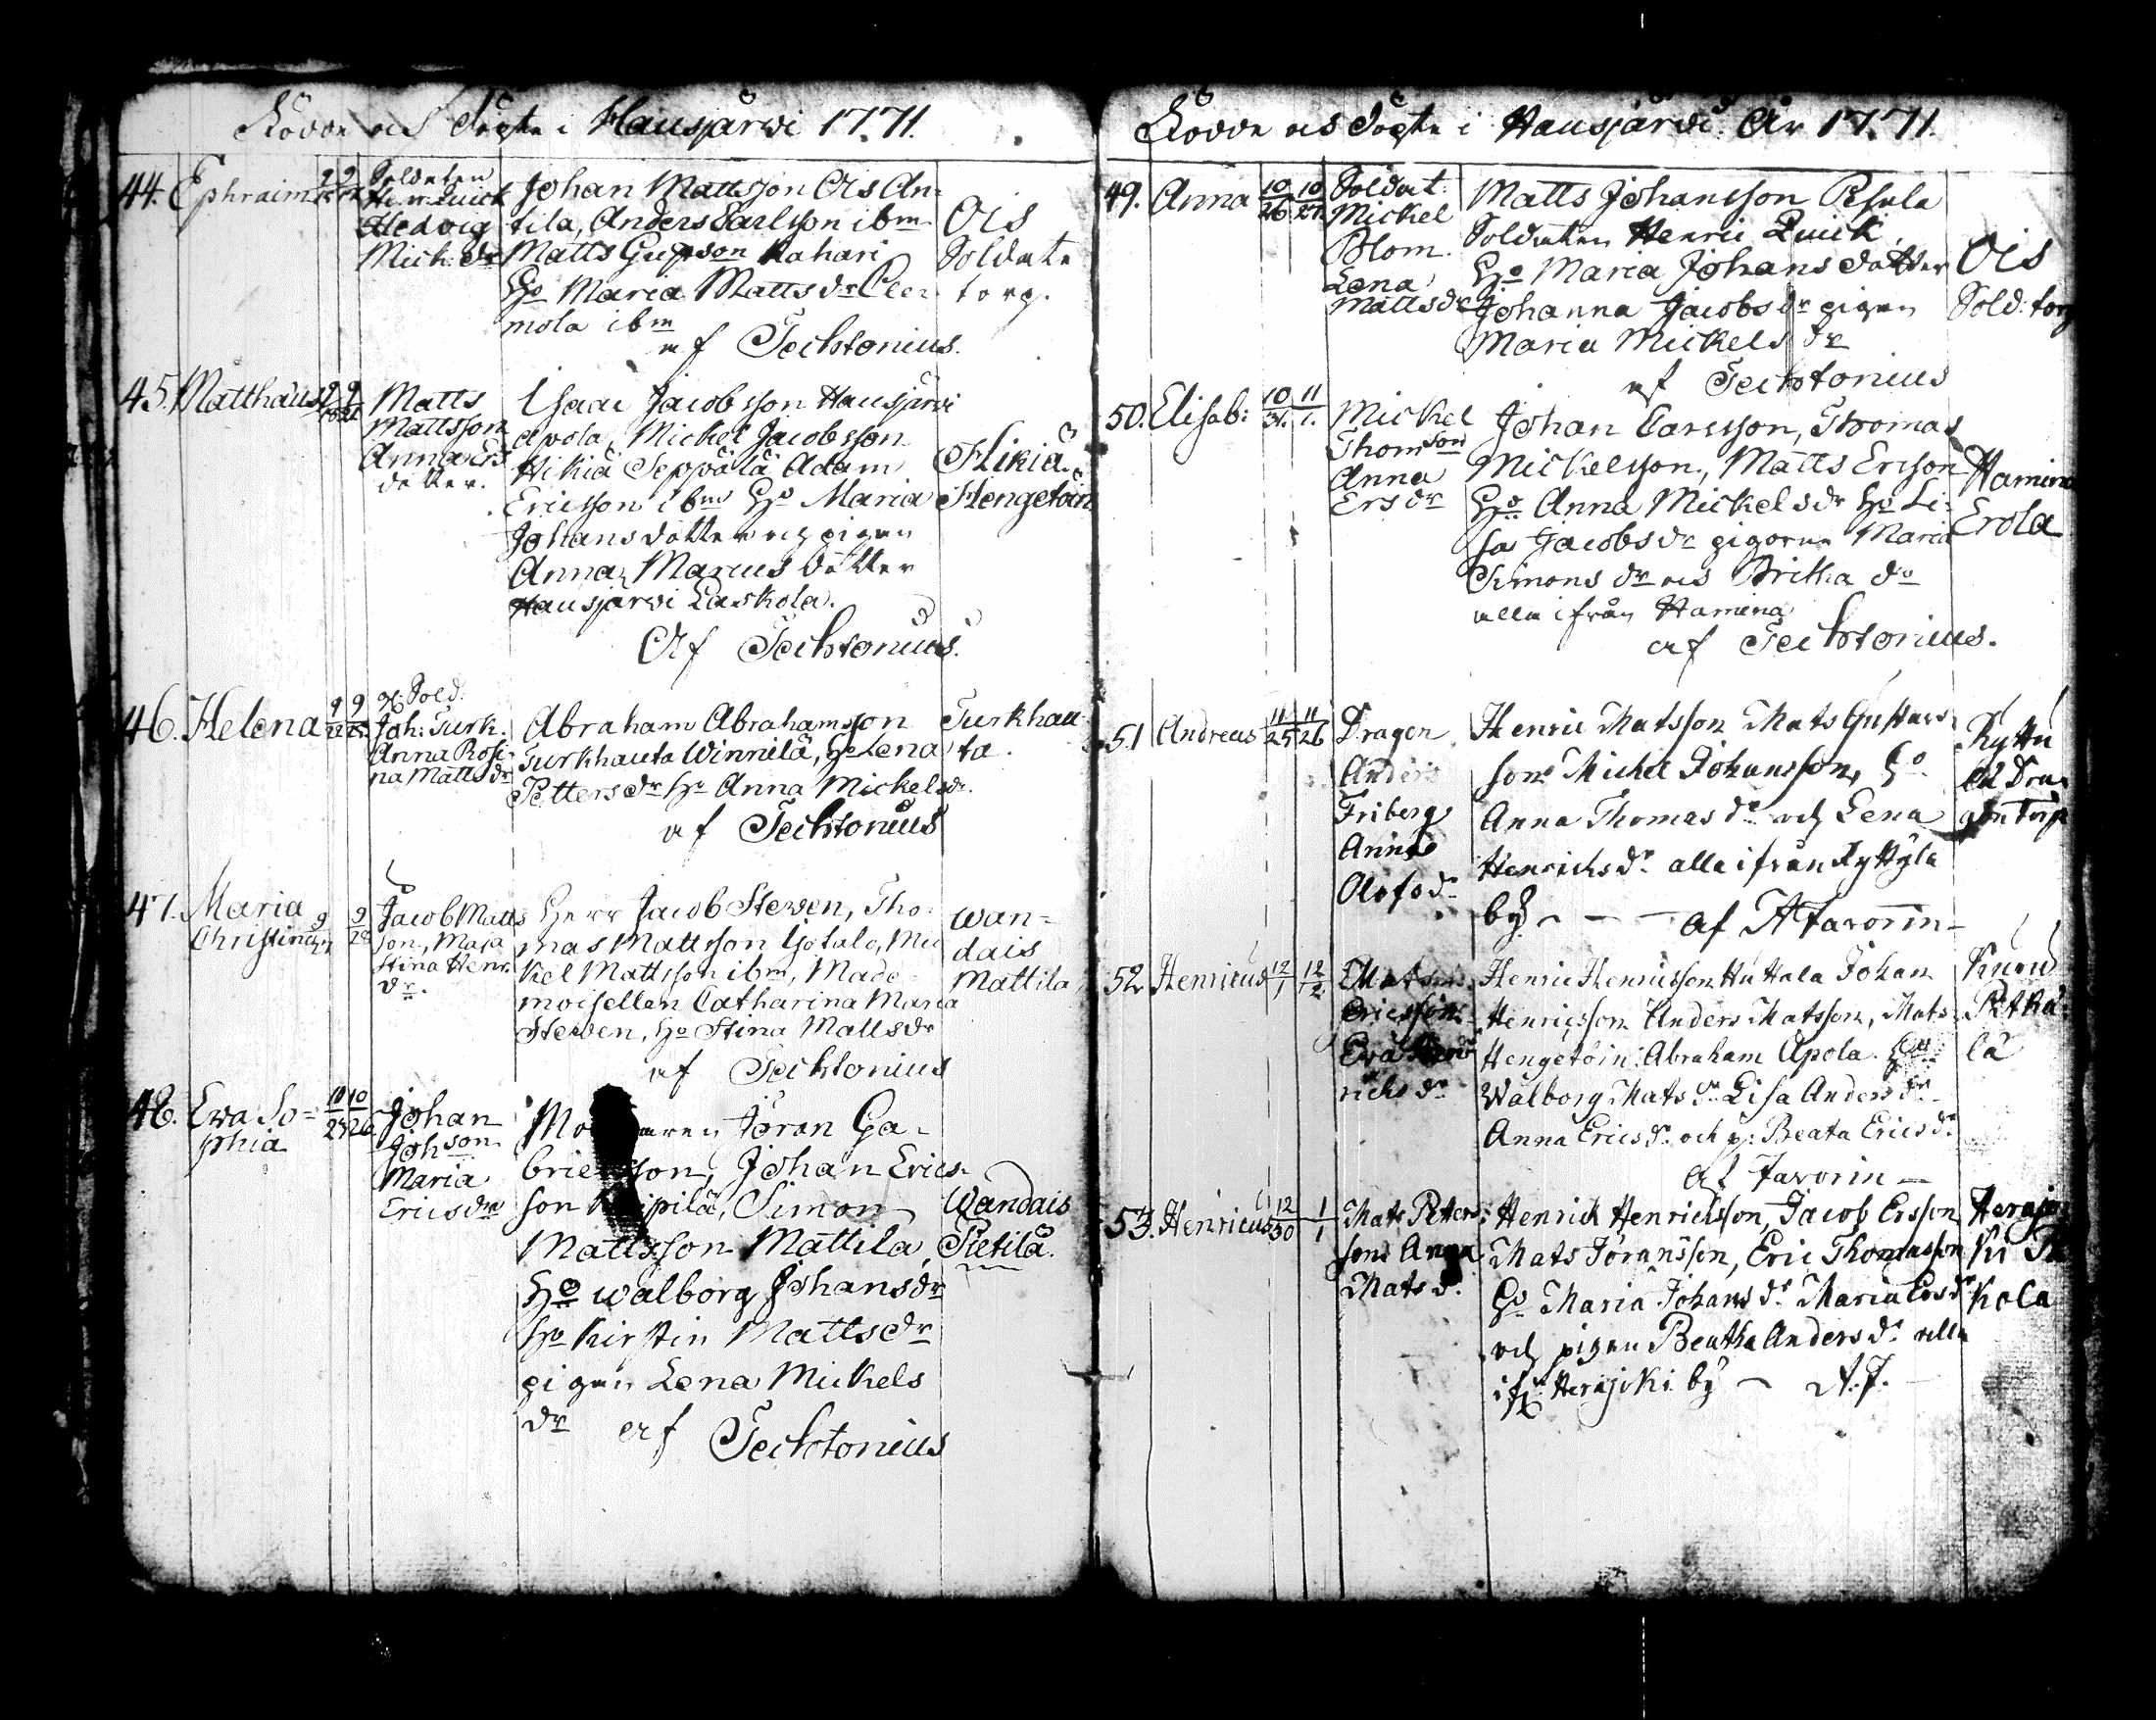 Födde och Döpte i Hausjärwi 1771.
44. Ephraim 9 9
Soldaten
Henr. Quick
Hedvig
Mich: dr
Johan Mattsson Ois An-
tila, Anders Carlsson ibm
Matts Gustson Kahari
Ho Maria Mattsdr
mola ibm
af Techtonius.
Ois
Soldate
torp.
45. Matthæus 9 9
Matts
Mattsson
Anna Ers
dotter.
Isaac Jacobsson Hausjärvi
Apola, Mickel Jacobsson
Hikiä Seppälä Adam
Ericsson ibm Ho Maria
Johansdotter och pigan
Anna Marcus dotter
Hausjärwi Laskola.
Af Techtonius.
Hikiä.
Hengetöin
46. Helena 9 9
Sold.
Joh: Turk.
Anna Rosi-
na Matts dr
Abraham Abrahamsson
Turkhauta Winnilä, Ho Lena
Petters dr Ho Anna Mickelsdr.
af Techtonius
Turkhau
ta.
47. Maria
Christina 9 9 28
Jacob Matts
son, Maja
Stina Henr.
dr.
Herr Jacob Steven, Tho-
mas Mattsson Ijotalo, Mic
kel Mattsson ibm, Made-
moisellen Catharina Maria
Steven, Ho Stina Mattsdr
af Techtonius
Wan-
dais
Mattila
48. Ewa So-
phia 10 10 26
Johan
Johson
Maria
Ericsdr
Jöran Ga-
son, Johan Erics-
son Simon
Mattsson Mattila,
Ho Walborg Johansdr
Ho Kirstin Mattsdr
pigan Lena Mickels
dr af Techtonius
Wandais
Pietilä.
Födde och Döpte i Hausjärwi År 1771.
49. Anna 10/26 10/27.
Soldat:
Mickel
Blom.
Lena
Mattsdr
Matts Johansson Pesula
Soldaten Henric Quick
Ho Maria Johans dotter
Johanna Jacobsdr pigan
Maria Mickels dr
af Techtonius
Ois
Sold: torp
50. Elisab: 10/31. 11/1.
Mickel
Thomson
Anna
Ersdr
Johan Carlsson, Thomas
Mickelsson, Matts Ericson
Ho Anna Mickelsdr Ho Li-
sa Jacobsdr pigorna Maria
Simonsdr och Britha dr
alla ifrån Hamina
af Techtonius.
Hamina
Erola
51 Andreas 11/25 11/26
Dragon
Anders
Friberg
Anna
Olofsdr
Henric Matsson Mats Gustavs
son Michel Johansson, Ho
Anna Thomasdr och Lena
Henrichsdr alla ifrån Ryttylä
by - - - af A Favorin -
Ryttylä
52. Henricus 12/1 12/2
Mats
Ericsson
Eva Hen
richsdr
Henric Henricsson Huhtala Johan
Henricsson Anders Matsson, Mats
Hengetöin Abraham Apola
Walborg Matsdr Lisa Andersdr
Anna Ericsdr och p: Beata Ericsdr
af Favorin -
Knuu
Pitkä-
lä
53. Henricus 12/30 1/1
Mats Peters
son Anna
Matsdr.
Henrick Henricksson, Jacob Ersson
Mats Jöransson, Eric Thomasson
Ho Maria Johansdr Maria Ersdr
och pigan Beatha Andersdr alla
ifr. Herajoki by - A.F.
Herajo
ki
kola